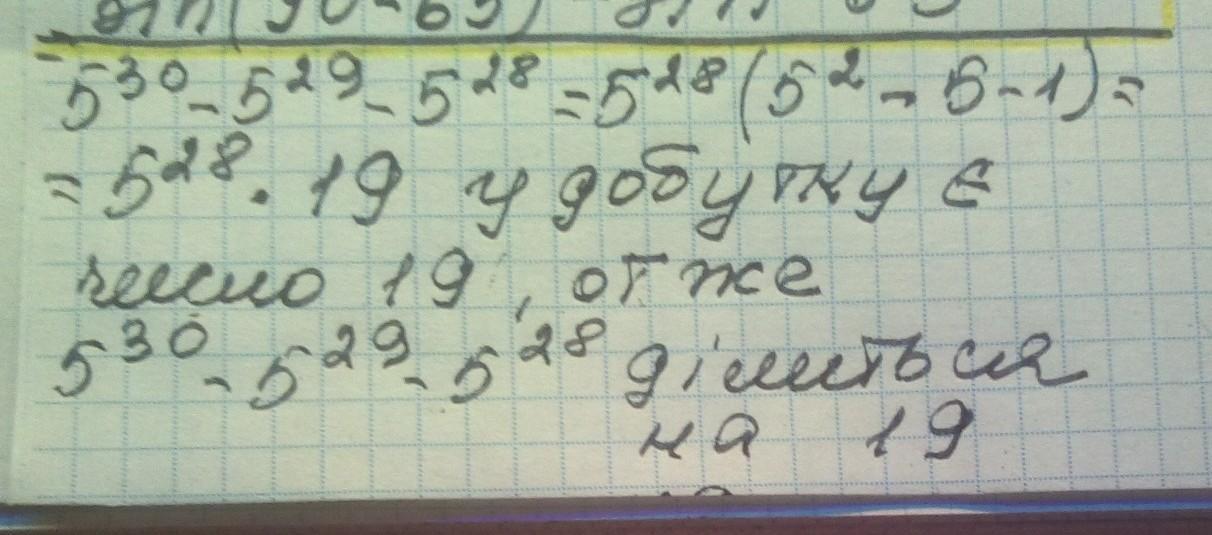 5³⁰ - 5²⁹ - 5²⁸ = 5²⁸ (5² - 5 - 1) =
= 5²⁸ · 19 у добутку є
число 19, отже
5³⁰ - 5²⁹ - 5²⁸ ділиться
на 19